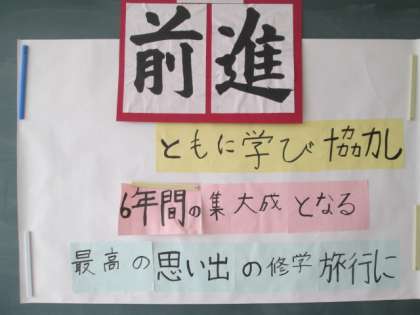 前進
ともに学び協力し
6年間の集大成となる
最高の思い出の修学旅行に